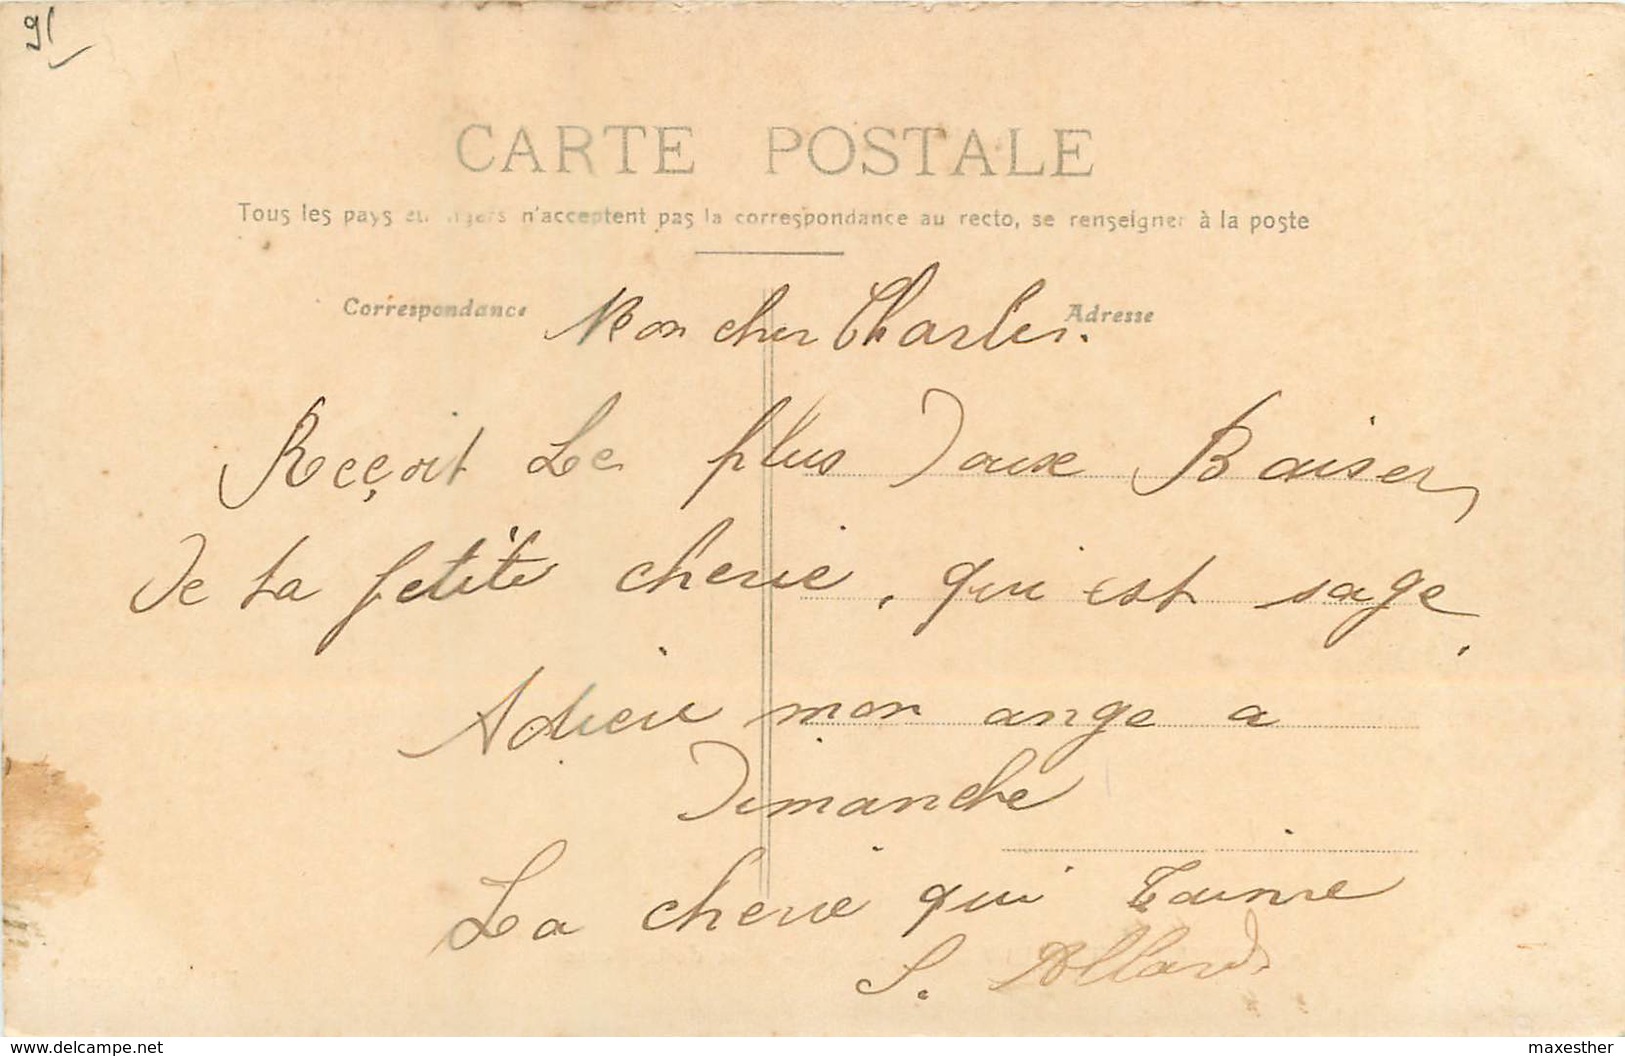 91
CARTE POSTALE
Tous les pays étrangers n'acceptent pas la correspondance au recto, se renseigner à la poste
Correspondance
Adresse
Mon cher Charles.
Reçoit Le plus Doux Baiser,
De ta petite cherie, qui est sage.
Adieu mon ange a
Dimanche
La cherie qui t'aime
S. Allard
www.delcampe.net
maxesther